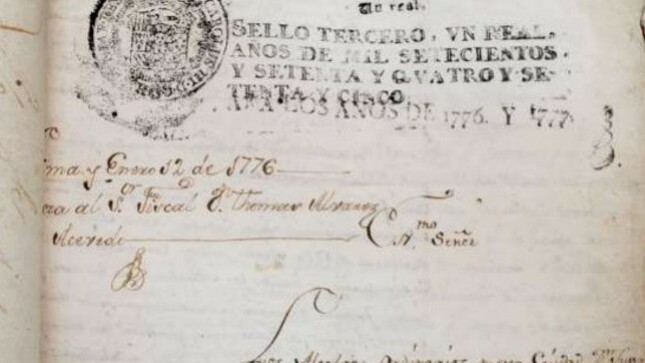 Un real.
SELLO TERCERO, VN REAL,
AÑOS DE MIL SETECIENTOS
Y SETENTA Y QVATRO Y SE-
TENTA Y CINCO.
PARA LOS AÑOS DE 1776. Y 1777.
ima y Enero 12 de 1776
al S.or Fiscal D.n Thomas Alvarez
Acevedo
Ex.mo Señor
Alcaldes Ordinarios Ciudad